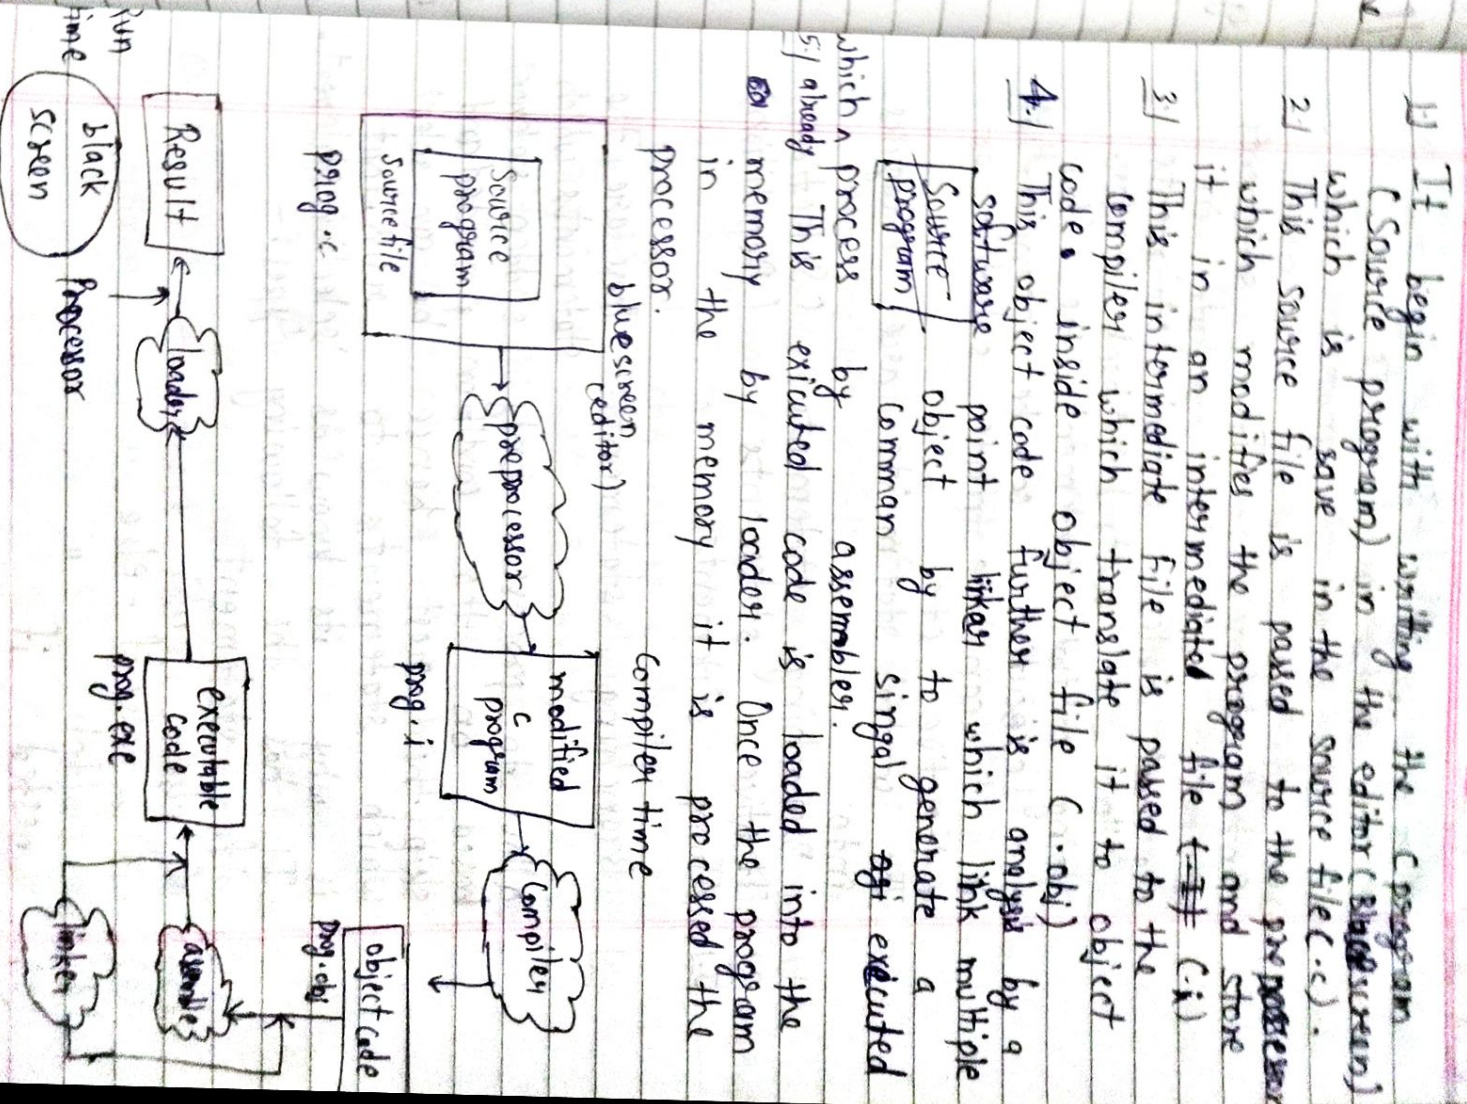 1.) It begin with writing the C program
(Source program) in the editor (Bluescreen)
which is save in the source file (.c).
2.) This source file is passed to the
which modifies the program and store
it in an intermediated file (.i)
3.) This intermediate file is passed to the
compiler which translate it to object
code inside object file (.obj)
4.) This object code further is analysis by a
software point linker which link multiple
Source program object by to generate a
comman singal executed
which process by assembler.
5.) already This exicuted code is loaded into the
memory by loader. Once the program
in the memory it is processed the
processor.
bluescreen (editor)
Compiler time
Source program
Source file
prog.c
preprocessor
modified C program
prog.i
Compiler
object code
prog.obj
assembler
linker
executable code
prog.exe
loader
Processor
Result
black screen
Run time